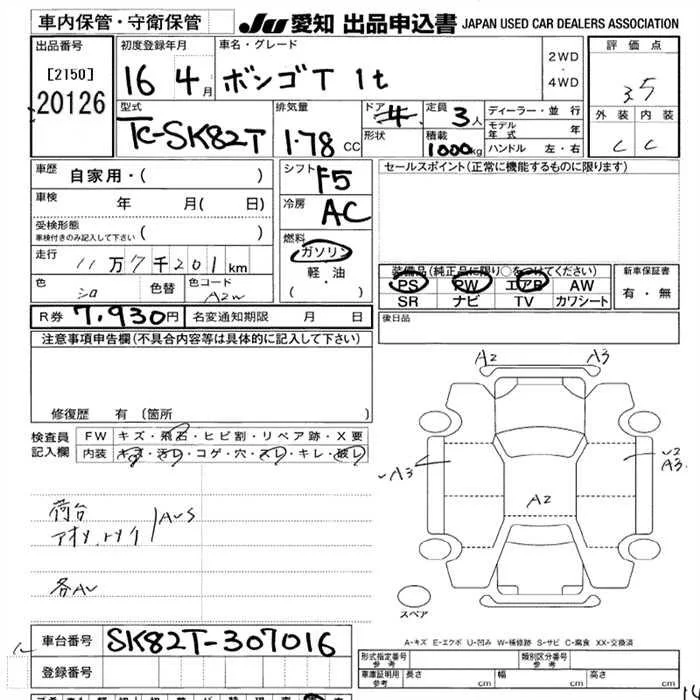 車内保管・守衛保管
JU 愛知 出品申込書 JAPAN USED CAR DEALERS ASSOCIATION
出品番号
[2150]
20126
初度登録年月
16 4月
車名・グレード
ボンゴT 1t
2WD
・
4WD
評価点
3.5
外装 内装
C C
型式
TC-SK82T
排気量
1.78 CC
ドア
形状
定員 3人
積載 1000kg
ディーラー・並行
モデル年式 年
ハンドル 左・右
車歴
自家用・( )
車検 年 月( 日)
受検形態
車検付きのみ記入して下さい ( )
走行 11万7千201km
色 シロ 色替 色コード A2W
シフト F5
冷房 AC
燃料
ガソリン
軽・油
( ・ )
セールスポイント(正常に機能するものに限ります)
装備品(純正品に限り○をつけてください)
PS PW エアB AW
SR ナビ TV カワシート
新車保証書
有・無
R券 7,930円 名変通知期限 月 日
後日品
注意事項申告欄(不具合内容等は具体的に記入して下さい)
修復歴 有 (箇所 )
検査員
記入欄
FW キズ・飛石・ヒビ割・リペア跡・X要
内装 キズ・汚レ・コゲ・穴・スレ・キレ・破レ
荷台
各AU
A2 A3
A3
A3
A2
スペア
A-キズ E-エクボ U-凹み W-補修跡 S-サビ C-腐食 XX-交換済
車台番号 SK82T-307016
登録番号
形式指定番号 参考
類別区分番号 参考
車庫証明用 参考 長さ cm 幅 cm 高さ cm